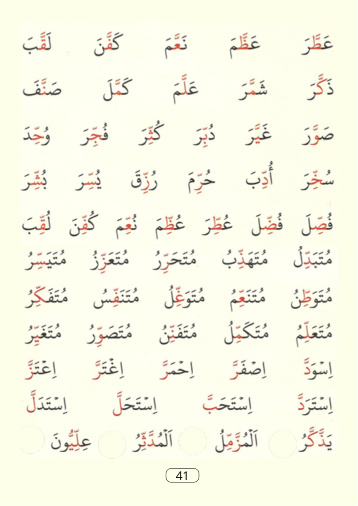 عَطَّرَ عَظَّمَ نَعَّمَ كَفَّنَ لَقَّبَ
ذَكَّرَ شَمَّرَ عَلَّمَ كَمَّلَ صَنَّفَ
صَوَّرَ غَيَّرَ دُبِّرَ كُثِّرَ فُجِّرَ وُحِّدَ
سُخِّرَ أُدِّبَ حُرِّمَ رُزِّقَ يُسِّرَ بُشِّرَ
فُصِّلَ فُضِّلَ عُطِّرَ عُظِّمَ نُعِّمَ كُفِّنَ لُقِّبَ
مُتَبَدِّلُ مُتَهَذِّبُ مُتَحَرِّرُ مُتَعَزِّزُ مُتَيَسِّرُ
مُتَوَطِّنُ مُتَنَعِّمُ مُتَوَغِّلُ مُتَنَفِّسُ مُتَفَكِّرُ
مُتَعَلِّمُ مُتَكَمِّلُ مُتَفَنِّنُ مُتَصَوِّرُ مُتَغَيِّرُ
اِسْوَدَّ اِصْفَرَّ اِحْمَرَّ اِغْتَرَّ اِعْتَزَّ
اِسْتَرَدَّ اِسْتَحَبَّ اِسْتَحَلَّ اِسْتَدَلَّ
يَذَّكَّرُ اَلْمُزَّمِّلُ اَلْمُدَّثِّرُ عِلِّيُّونَ
41